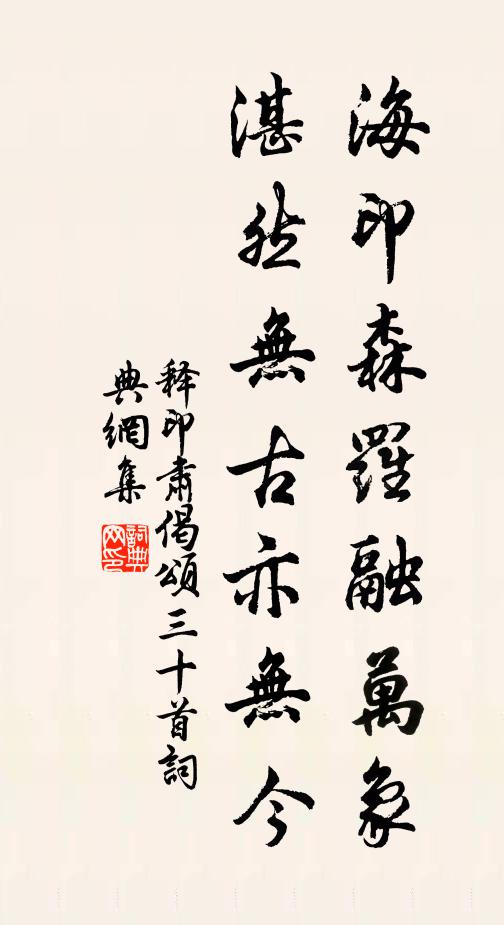 海印森羅融萬象
湛然無古亦無今
释印肅偈頌三十首詞
典網集
詞典網印